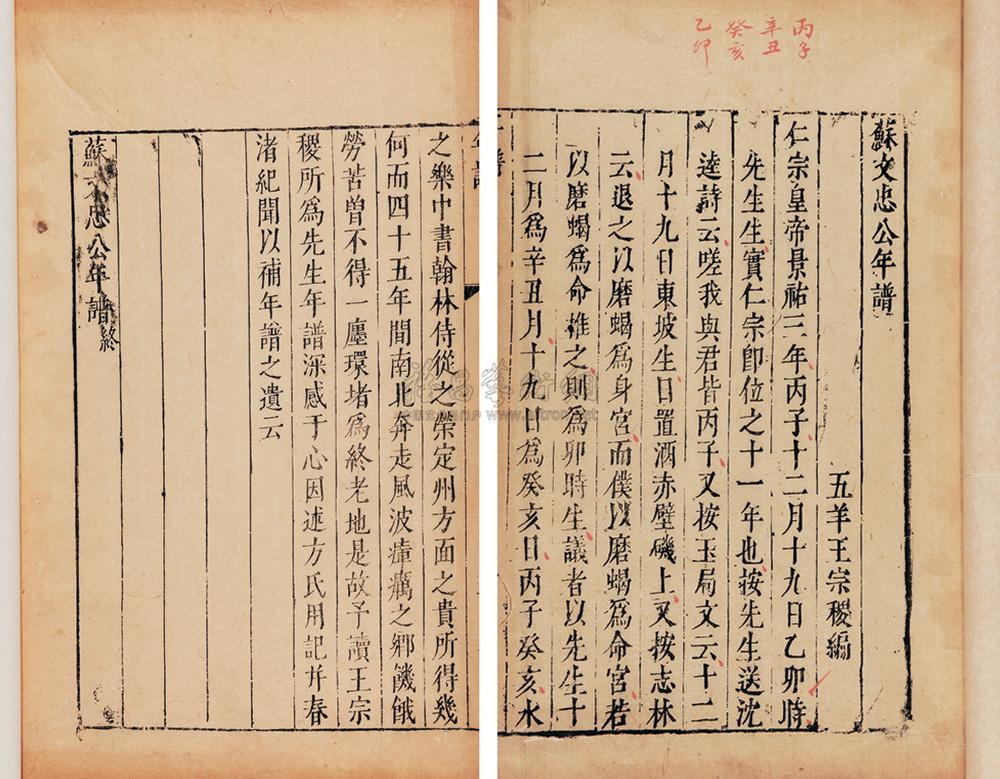 丙子
辛丑
癸亥
乙卯
蘇文忠公年譜
五羊王宗稷編
仁宗皇帝景祐三年丙子十二月十九日乙卯時
先生生實仁宗卽位之十一年也按先生送沈
逵詩云嗟我與君皆丙子又按玉局文云十二
月十九日東坡生日置酒赤壁磯上又按志林
云退之以磨蝎爲身宮而僕以磨蝎爲命宮若
以磨蝎爲命推之則爲卯時生議者以先生十
二月爲辛丑月十九日爲癸亥日丙子癸亥水
年譜
之樂中書翰林侍從之榮定州方面之貴所得幾
何而四十五年間南北奔走風波瘴癘之鄉饑餓
勞苦曾不得一廛環堵爲終老地是故予讀王宗
稷所爲先生年譜深感于心因述方氏用記幷春
渚紀聞以補年譜之遺云
蘇文忠公年譜終
www.artron.net